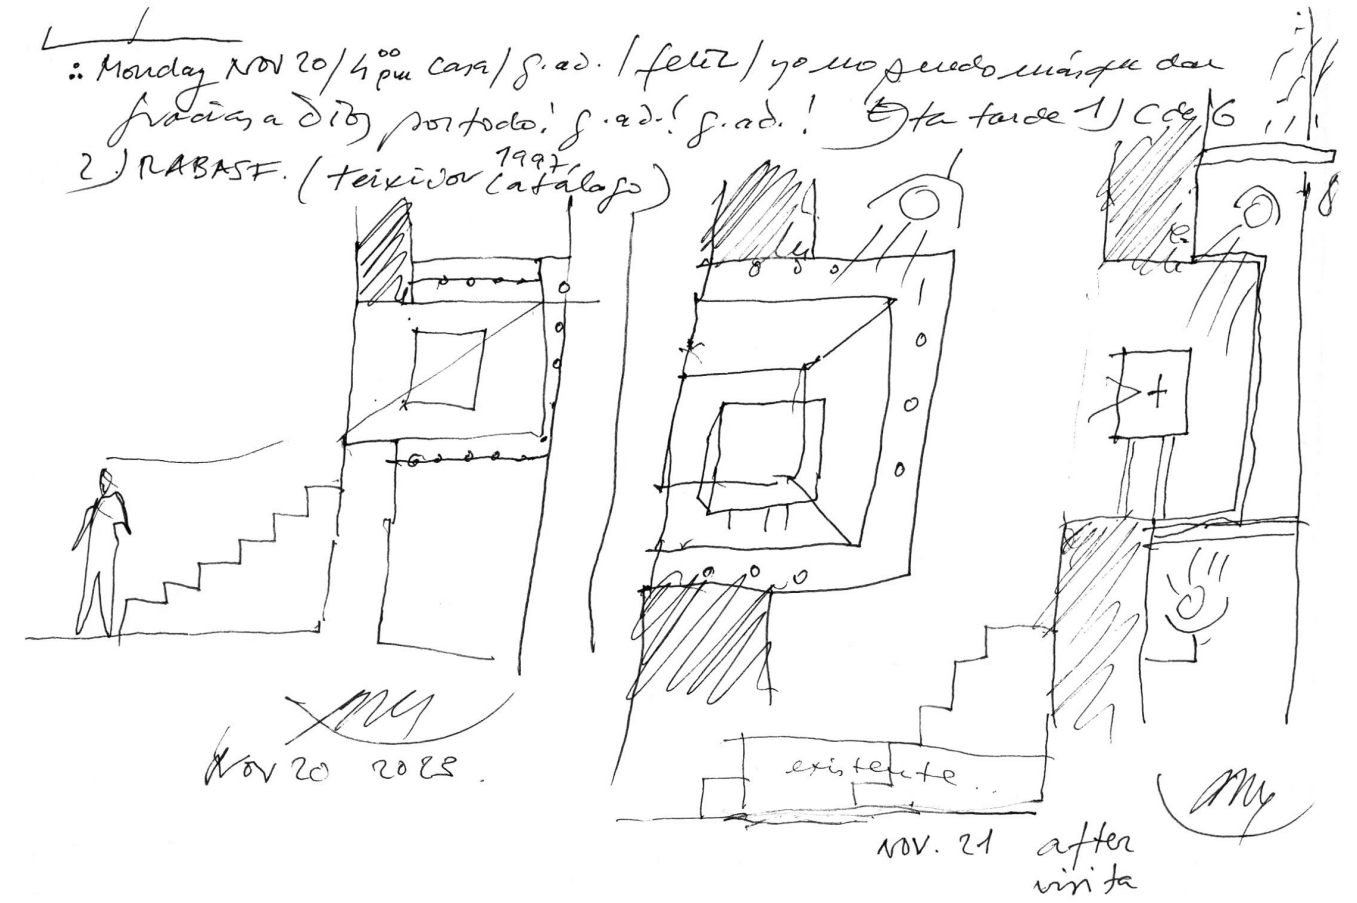 : Monday NOV 20 / 4 00 pm casa / g.a.d. / feliz / yo no puedo más que dar
gracias a Dios por todo! g.a.d.! g.a.d.! Esta tarde 1) C de G
2.) RABASF. (Teixidor 1997 Catálogo)
+8
existente..
Nov 20 2023.
NOV. 21 after
visita